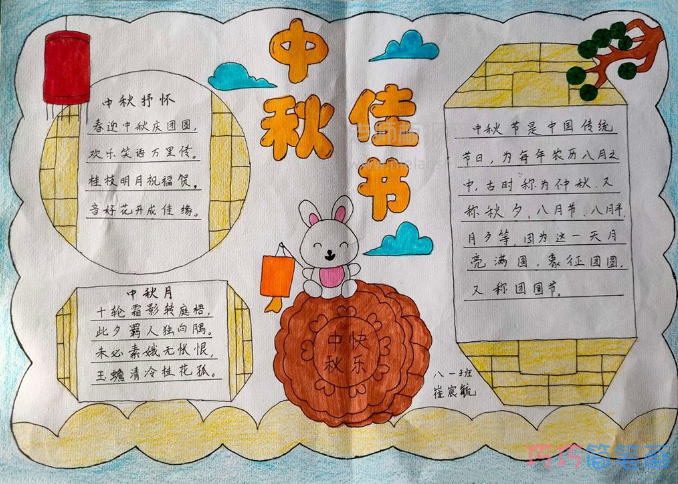 中秋佳节
中秋抒怀
春迎中秋庆团圆，
欢乐笑语万里传。
桂枝明月祝福贺，
音好花开成佳缘。
中秋月
十轮霜影转庭梧，
此夕羁人独向隅。
未必素娥无怅恨，
玉蟾清冷桂花孤。
中秋节是中国传统
节日，为每年农历八月之
中，古时称为仲秋，又
称秋夕、八月节、八月半、
月夕等，因为这一天月
亮满圆，象征团圆，
又称团圆节。
中快
秋乐
八一班
崔宸毓
巧巧简笔画